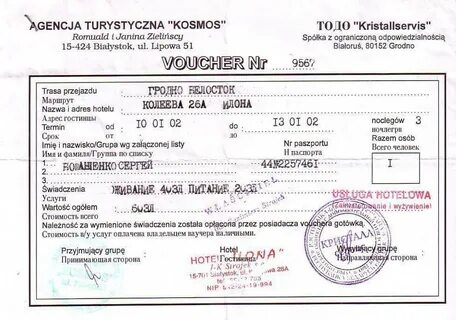 AGENCJA TURYSTYCZNA "KOSMOS"
Romuald i Janina Zielińscy
15-424 Białystok, ul. Lipowa 51
ТОДО "Kristallservis"
Spółka z ograniczoną odpowiedzialnością
Białoruś, 80152 Grodno
VOUCHER Nr 9567
Trasa przejazdu ГРОДНО БЕЛОСТОК
Маршрут
Nazwa i adres hotelu КОЛЕЕВА 26А ИЛОНА
Адрес гостиницы
Termin od 10 01 02 do 13 01 02 noclegów 3
Срок от до ночлегов
Imię i nazwisko/Grupa wg załączonej listy Nr paszportu Razem osób
Имя и фамилия/Группа по списку Н паспорта Всего человек
1. СЕРГЕЙ 1
2.
3.
Świadczenia ПИТАНИЕ
Услуги
Wartość ogółem 60ЗЛ
Стоимость всего
USŁUGA HOTELOWA
WŁAŚCICIEL
Należność za wymienione świadczenia została opłacona przez posiadacza vouchera gotówką.
Стоимость в/у услуг оплачена владельцем ваучера наличными.
Przyjmujący grupę Hotel Wysyłający grupę
Принимающая сторона Гостиница Направляющая сторона
HOTEL "ILONA"
КРИСТАЛЛ